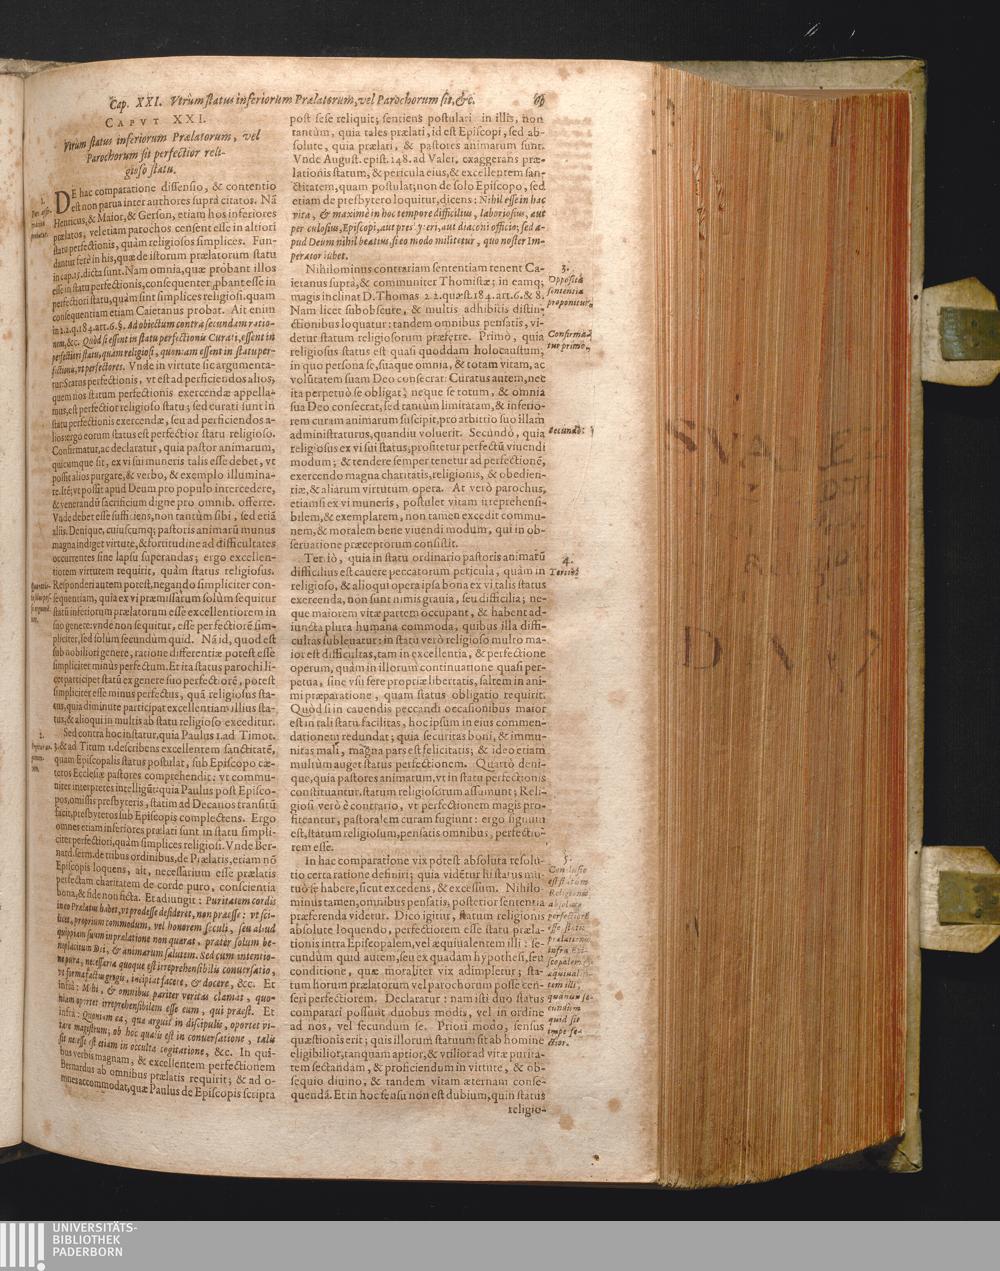 Cap. XXI. Vtrùm status inferiorum Prælatorum, vel Parochorum sit, &c.
CAPVT XXI.
Vtrùm status inferiorum Prælatorum, vel
Parochorum sit perfectior reli-
gioso statu.
DE hac comparatione dissensio, & contentio
est non parua inter authores suprà citatos. Nā
Henricus, & Maior, & Gerson, etiam hos inferiores
prælatos, vel etiam parochos censent esse in altiori
statu perfectionis, quàm religiosos simplices. Fun-
dantur ferè in his, quæ de istorum prælatorum statu
in cap. 15. dicta sunt. Nam omnia, quæ probant illos
esse in statu perfectionis, consequenter ꝓbant esse in
perfectiori statu, quàm sint simplices religiosi. quam
consequentiam etiam Caietanus probat. Ait enim
in 2.2.q.184.art.6.§. Ad obiectum contra secundam ratio-
nem, &c. Quòd si essent in statu perfectionis Curati, essent in
perfectiori statu, quàm religiosi, quoniam essent in statu per-
fectionis, vt perfectores. Vnde in virtute sic argumenta-
tur: Status perfectionis, vt est ad perficiendos alios,
quem nos statum perfectionis exercendæ appella-
mus, est perfectior religioso statu; sed curati sunt in
statu perfectionis exercendæ, seu ad perficiendos a-
lios: ergo eorum status est perfectior statu religioso.
Confirmatur, ac declaratur, quia pastor animarum,
quicumque sit, ex vi sui muneris talis esse debet, vt
possit alios purgare, & verbo, & exemplo illumina-
re. Itē; vt possit apud Deum pro populo intercedere,
& venerandū sacrificium digne pro omnib. offerre.
Vnde debet esse sufficiens, non tantùm sibi, sed etiā
aliis. Denique, cuiuscumq; pastoris animarū munus
magna indiget virtute, & fortitudine ad difficultates
occurrentes sine lapsu superandas; ergo excellen-
tiorem virtutem requirit, quàm status religiosus.
Responderi autem potest, negando simpliciter con-
sequentiam, quia ex vi præmissarum solùm sequitur
statū inferiorum prælatorum esse excellentiorem in
suo genere: vnde non sequitur, esse perfectiorē sim-
pliciter, sed solùm secundum quid. Nā id, quod est
sub nobiliori genere, ratione differentiæ potest esse
simpliciter minùs perfectum. Et ita status parochi li-
cet participet statū ex genere suo perfectiorē, potest
simpliciter esse minus perfectus, quā religiosus sta-
tus, quia diminute participat excellentiam illius sta-
tus, & alioqui in multis ab statu religioso exceditur.
Sed contra hoc instatur, quia Paulus 1. ad Timot.
3. & ad Titum 1. describens excellentem sanctitatē,
quam Episcopalis status postulat, sub Episcopo cæ-
teros Ecclesiæ pastores comprehendit: vt commu-
niter interpretes intelligūt: quia Paulus post Episco-
pos, omissis presbyteris, statim ad Decanos transitū
facit, presbyteros sub Episcopis complectens. Ergo
omnes etiam inferiores prælati sunt in statu simpli-
citer perfectiori, quàm simplices religiosi. Vnde Ber-
nard. serm. de tribus ordinibus, de Prælatis, etiam nō
Episcopis loquens, ait, necessarium esse prælatis
perfectam charitatem de corde puro, conscientia
bona, & fide non ficta. Et adiungit: Puritatem cordis
in eo Prælatus habet, vt prodesse desideret, non præesse: vt sci-
licet, proprium commodum, vel honorem seculi, seu aliud
quippiam suum in prælatione non quærat, præter solum be-
neplacitum Dei, & animarum salutem. Sed cum intentio-
ne pura, necessaria quoque est irreprehensibilis conuersatio,
vt forma factus gregis, incipiat facere, & docere, &c. Et
infrà: Mihi, & omnibus pariter veritas clamat, quo-
niam oportet irreprehensibilem esse eum, qui præest. Et
infrà: Quoniam ea, quæ arguit in discipulis, oportet vi-
tare magistrum; ob hoc qualis est in conuersatione, talis
sit necesse est etiam in occulta cogitatione, &c. In qui-
bus verbis magnam, & excellentem perfectionem
Bernardus ab omnibus prælatis requirit; & ad o-
mnes accommodat, quæ Paulus de Episcopis scripta
post sese reliquit; sentiens postulari in illis, non
tantùm, quia tales prælati, id est Episcopi, sed ab-
solute, quia prælati, & pastores animarum sunt.
Vnde August. epist. 148. ad Valer. exaggerans præ-
lationis statum, & pericula eius, & excellentem san-
ctitatem, quam postulat; non de solo Episcopo, sed
etiam de presbytero loquitur, dicens: Nihil esse in hac
vita, & maximè in hoc tempore difficilius, laboriosius, aut
periculosius, Episcopi, aut presbyteri, aut diaconi officio; sed a-
pud Deum nihil beatius, si eo modo militetur, quo noster Im-
perator iubet.
Nihilominus contrariam sententiam tenent Ca-
ietanus suprà, & communiter Thomistæ; in eamq;
magis inclinat D. Thomas 2.2. quæst. 184. art. 6. & 8.
Nam licet subobscure, & multis adhibitis distin-
ctionibus loquatur: tandem omnibus pensatis, vi-
detur statum religiosorum præferre. Primò, quia
religiosus status est quasi quoddam holocaustum,
in quo persona se, suaque omnia, & totam vitam, ac
voluntatem suam Deo consecrat: Curatus autem, nec
ita perpetuò se obligat, neque se totum, & omnia
sua Deo consecrat, sed tantùm limitatam, & inferio-
rem curam animarum suscipit, pro arbitrio suo illam
administraturus, quandiu voluerit. Secundò, quia
religiosus ex vi sui status, profitetur perfectū viuendi
modum; & tendere semper tenetur ad perfectionē,
exercendo magna charitatis, religionis, & obedien-
tiæ, & aliarum virtutum opera. At verò parochus,
etiamsi ex vi muneris, postulet vitam irreprehensi-
bilem, & exemplarem, non tamen excedit commu-
nem, & moralem bene viuendi modum, qui in ob-
seruatione præceptorum consistit.
Tertiò, quia in statu ordinario pastoris animarū
difficilius est cauere peccatorum pericula, quàm in
religioso, & alioqui opera ipsa bona ex vi talis status
exercenda, non sunt nimis grauia, seu difficilia; ne-
que maiorem vitæ partem occupant, & habent ad-
iuncta plura humana commoda, quibus illa diffi-
cultas subleuatur: in statu verò religioso multo ma-
ior est difficultas, tam in excellentia, & perfectione
operum, quàm in illorum continuatione quasi per-
petua, sine vsu fere propriæ libertatis, saltem in ani-
mi præparatione, quam status obligatio requirit.
Quòd si in cauendis peccandi occasionibus maior
est in tali statu facilitas, hoc ipsum in eius commen-
dationem redundat; quia securitas boni, & immu-
nitas mali, magna pars est felicitatis; & ideo etiam
multùm auget status perfectionem. Quartò deni-
que, quia pastores animarum, vt in statu perfectionis
constituantur, statum religiosorum assumunt; Reli-
giosi verò è contrario, vt perfectionem magis pro-
fiteantur, pastoralem curam fugiunt: ergo signum
est, statum religiosum, pensatis omnibus, perfectio-
rem esse.
In hac comparatione vix potest absoluta resolu-
tio certa ratione definiri; quia videtur hi status mu-
tuò se habere, sicut excedens, & excessum. Nihilo-
minus tamen, omnibus pensatis, posterior sententia
præferenda videtur. Dico igitur, statum religionis
absolute loquendo, perfectiorem esse statu præla-
tionis infra Episcopalem, vel æquiualentem illi: se-
cundùm quid autem, seu ex quadam hypothesi, seu
conditione, quæ moraliter vix adimpletur; sta-
tum horum prælatorum vel parochorum posse cen-
seri perfectiorem. Declaratur: nam isti duo status
comparari possunt duobus modis, vel in ordine
ad nos, vel secundum se. Priori modo, sensus
quæstionis erit; quis illorum statuum sit ab homine
eligibilior, tanquam aptior, & vtilior ad vitæ purita-
tem sectandam, & proficiendum in virtute, & ob-
sequio diuino, & tandem vitam æternam conse-
quendā. Et in hoc sensu non est dubium, quin status
religio-
1.
2.
3.
Opposita
sententia
proponitur.
Confirma-
tur primo.
Secundò:
4.
Tertiò.
5.
Conclusio
est statum
Religionis
absolute
perfectiorē
esse statu
prælationis
infra Epi-
scopalem
æquiualē-
tem illi,
quamuis se-
cundùm
quid sit
imperfe-
ctior.
UNIVERSITÄTS-
BIBLIOTHEK
PADERBORN